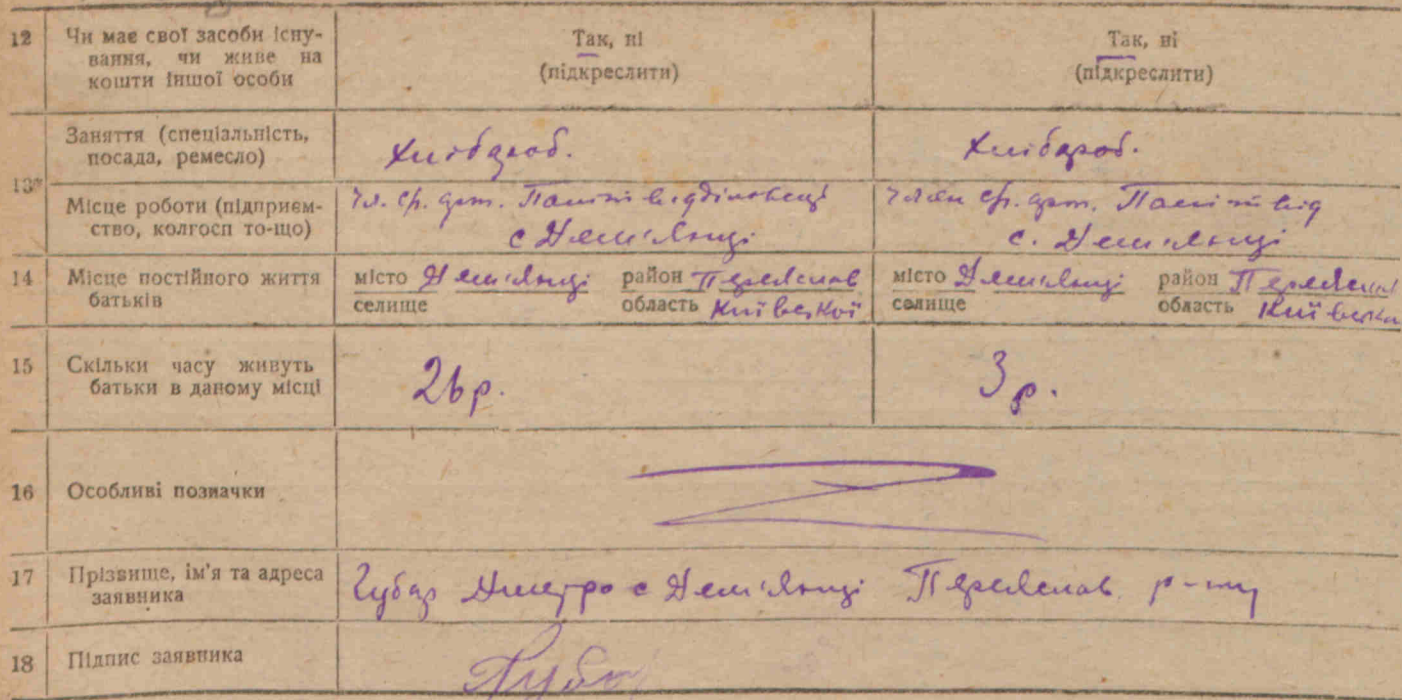 12 Чи має свої засоби існу-
вання, чи живе на
кошти іншої особи
Так, ні
(підкреслити)
Так, ні
(підкреслити)
13
Заняття (спеціальність,
посада, ремесло)
Хлібороб.
Хлібороб.
Місце роботи (підприєм-
ство, колгосп то-що)
Чл. с/г. арт.
с Дем'янці
Член с/г. арт.
с. Дем'янці
14 Місце постійного життя
батьків
місто Дем'янці район Переяслав
селище область Київської
місто Дем'янці район Переяслав
селище область Київська
15 Скільки часу живуть
батьки в даному місці
26 р.
3 р.
16 Особливі позначки
17 Прізвище, ім'я та адреса
заявника
Губар Дмитро с Дем'янці Переяслав р-ну
18 Підпис заявника